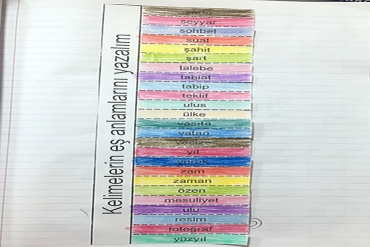 Kelimelerin eş anlamlarını yazalım
seyyar
sohbet
sual
şahit
şart
talebe
tabiat
tabip
teklif
ulus
ülke
vasıta
vatan
yıl
zam
zaman
özen
mesuliyet
ulu
resim
fotoğraf
yüzyıl